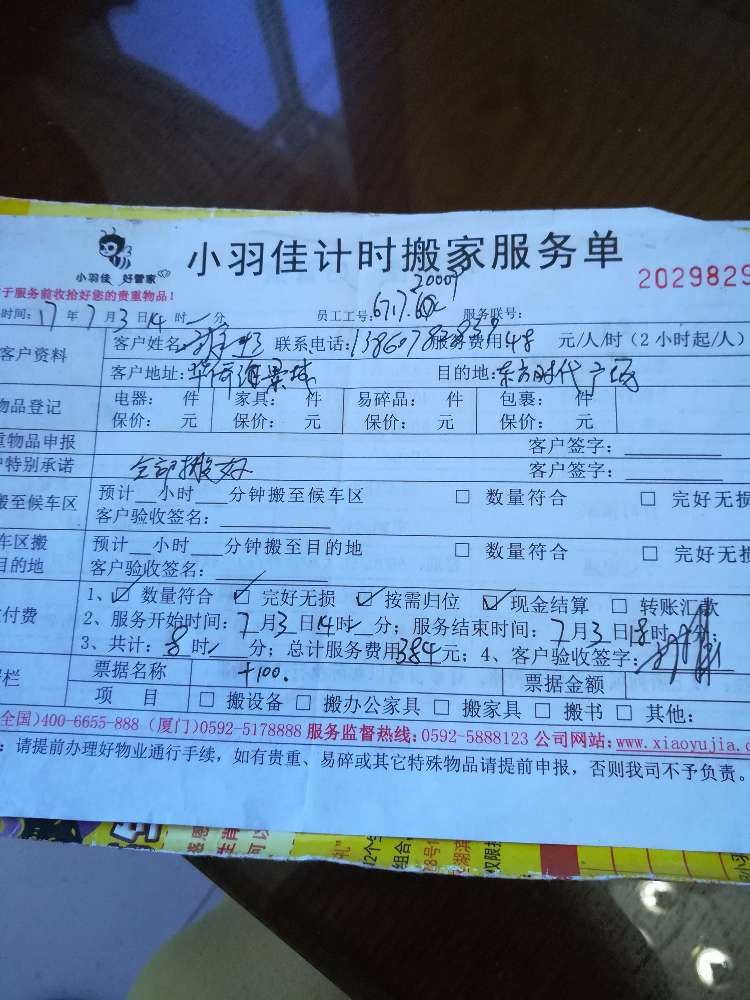 小羽佳 好管家
小羽佳计时搬家服务单
2029829
于服务前收拾好您的贵重物品！
时间：17年7月3日14时 分 员工工号： 服务联号：
客户资料 客户姓名： 联系电话： 服务费用48元/人/时（2小时起/人）
客户地址：华侨海景城 目的地：东方时代广场
物品登记 电器： 件 家具： 件 易碎品： 件 包裹： 件
保价： 元 保价： 元 保价： 元 保价： 元
重物品申报 客户签字：
户特别承诺 全部搬好 客户签字：
搬至候车区 预计__小时___分钟搬至候车区 □ 数量符合 □ 完好无损
客户验收签名：
车区搬 预计__小时___分钟搬至目的地 □ 数量符合 □ 完好无损
目的地 客户验收签名：
付费 1、☑ 数量符合 ☑ 完好无损 ☑ 按需归位 ☑ 现金结算 □ 转账汇款
2、服务开始时间：7月3日14时 分；服务结束时间：7月3日18时 分；
3、共计：8时 分；总计服务费用384元；4、客户验收签字：
栏 票据名称 +100. 票据金额
项 目 □ 搬设备 □ 搬办公家具 □ 搬家具 □ 搬书 □ 其他：
全国)400-6655-888 (厦门)0592-5178888 服务监督热线:0592-5888123 公司网站:www.xiaoyujia.c
：请提前办理好物业通行手续，如有贵重、易碎或其它特殊物品请提前申报，否则我司不予负责。